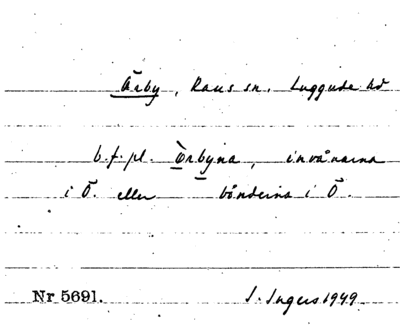 Örby, Raus sn. Luggude hd
b.f.pl. Örbyna, invånarna
i Ö. eller bönderna i Ö.
Nr 5691. I. Ingers 1949